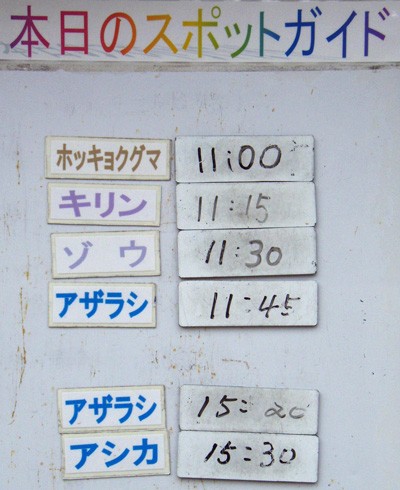 本日のスポットガイド
ホッキョクグマ 11:00
キリン 11:15
ゾウ 11:30
アザラシ 11:45
アザラシ 15:20
アシカ 15:30